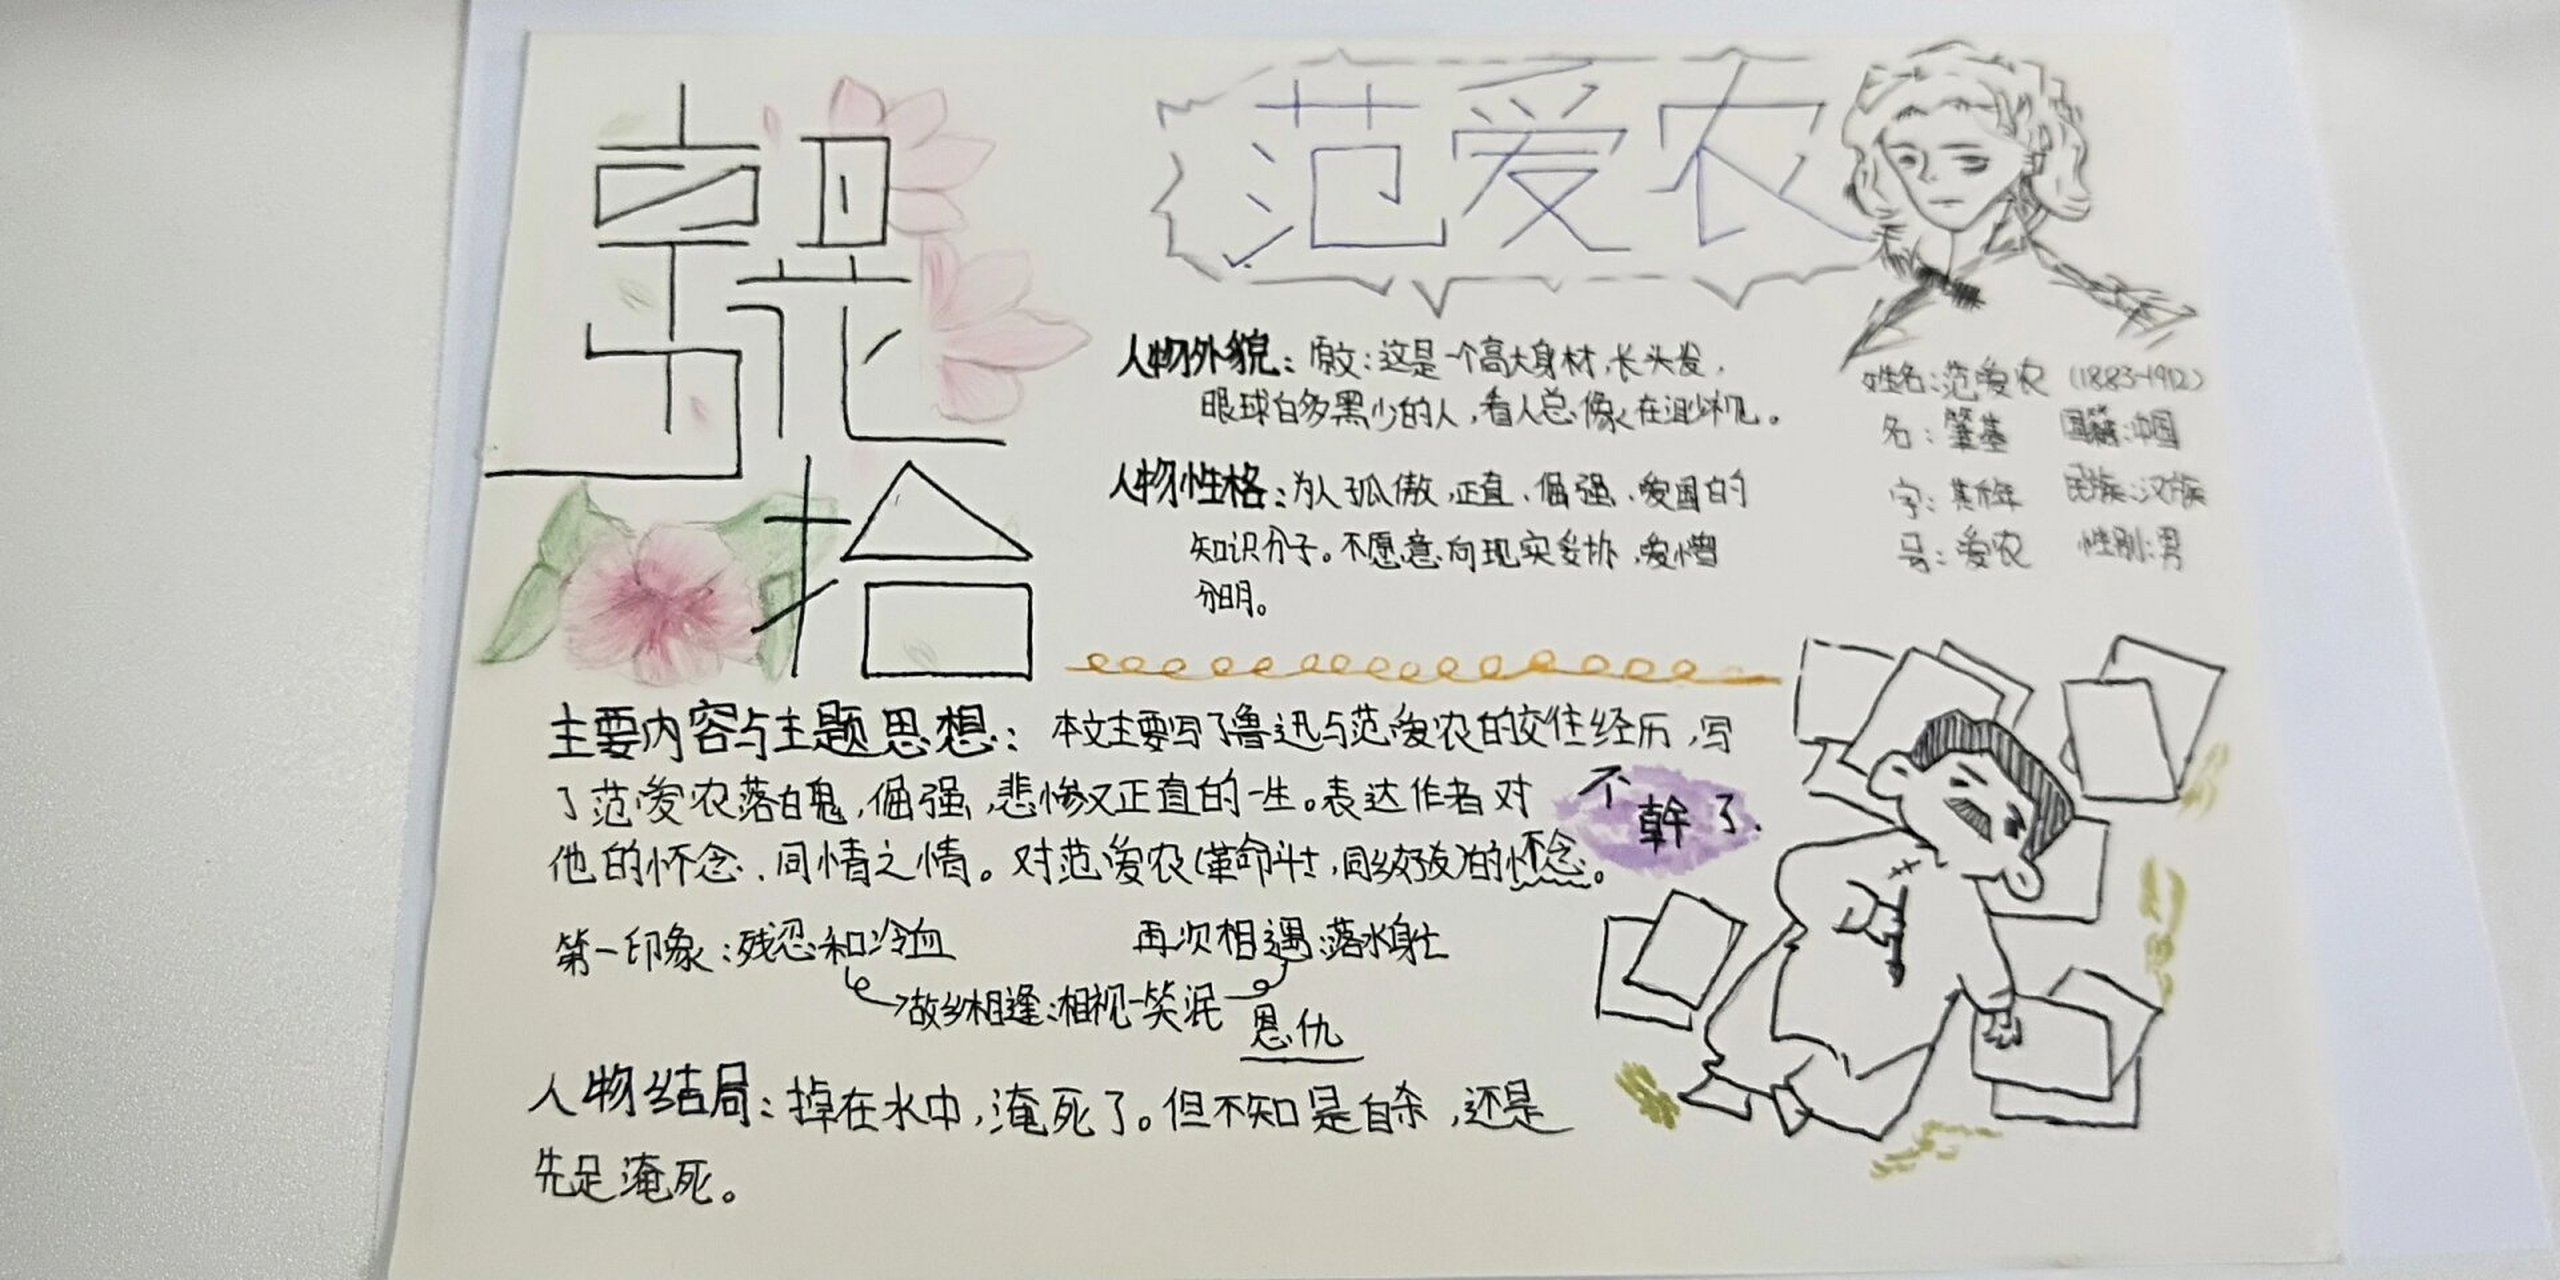 朝花夕拾
范爱农
人物外貌：原文：这是一个高大身材，长头发，
眼球白多黑少的人，看人总像在渺视。
姓名：范爱农（1883-1912）
名：肇基 国籍：中国
字：斯年 民族：汉族
号：爱农 性别：男
人物性格：为人孤傲，正直、倔强、爱国的
知识分子。不愿意向现实妥协，爱憎
分明。
主要内容与主题思想：本文主要写了鲁迅与范爱农的交往经历，写
了范爱农落魄，倔强，悲惨又正直的一生。表达作者对
他的怀念、同情之情。对范爱农（革命斗士，同乡好友）的怀念。
不幹了.
第一印象：残忍和冷血 再次相遇：落水身亡
故乡相逢：相视一笑泯
恩仇
人物结局：掉在水中，淹死了。但不知是自杀，还是
失足淹死。